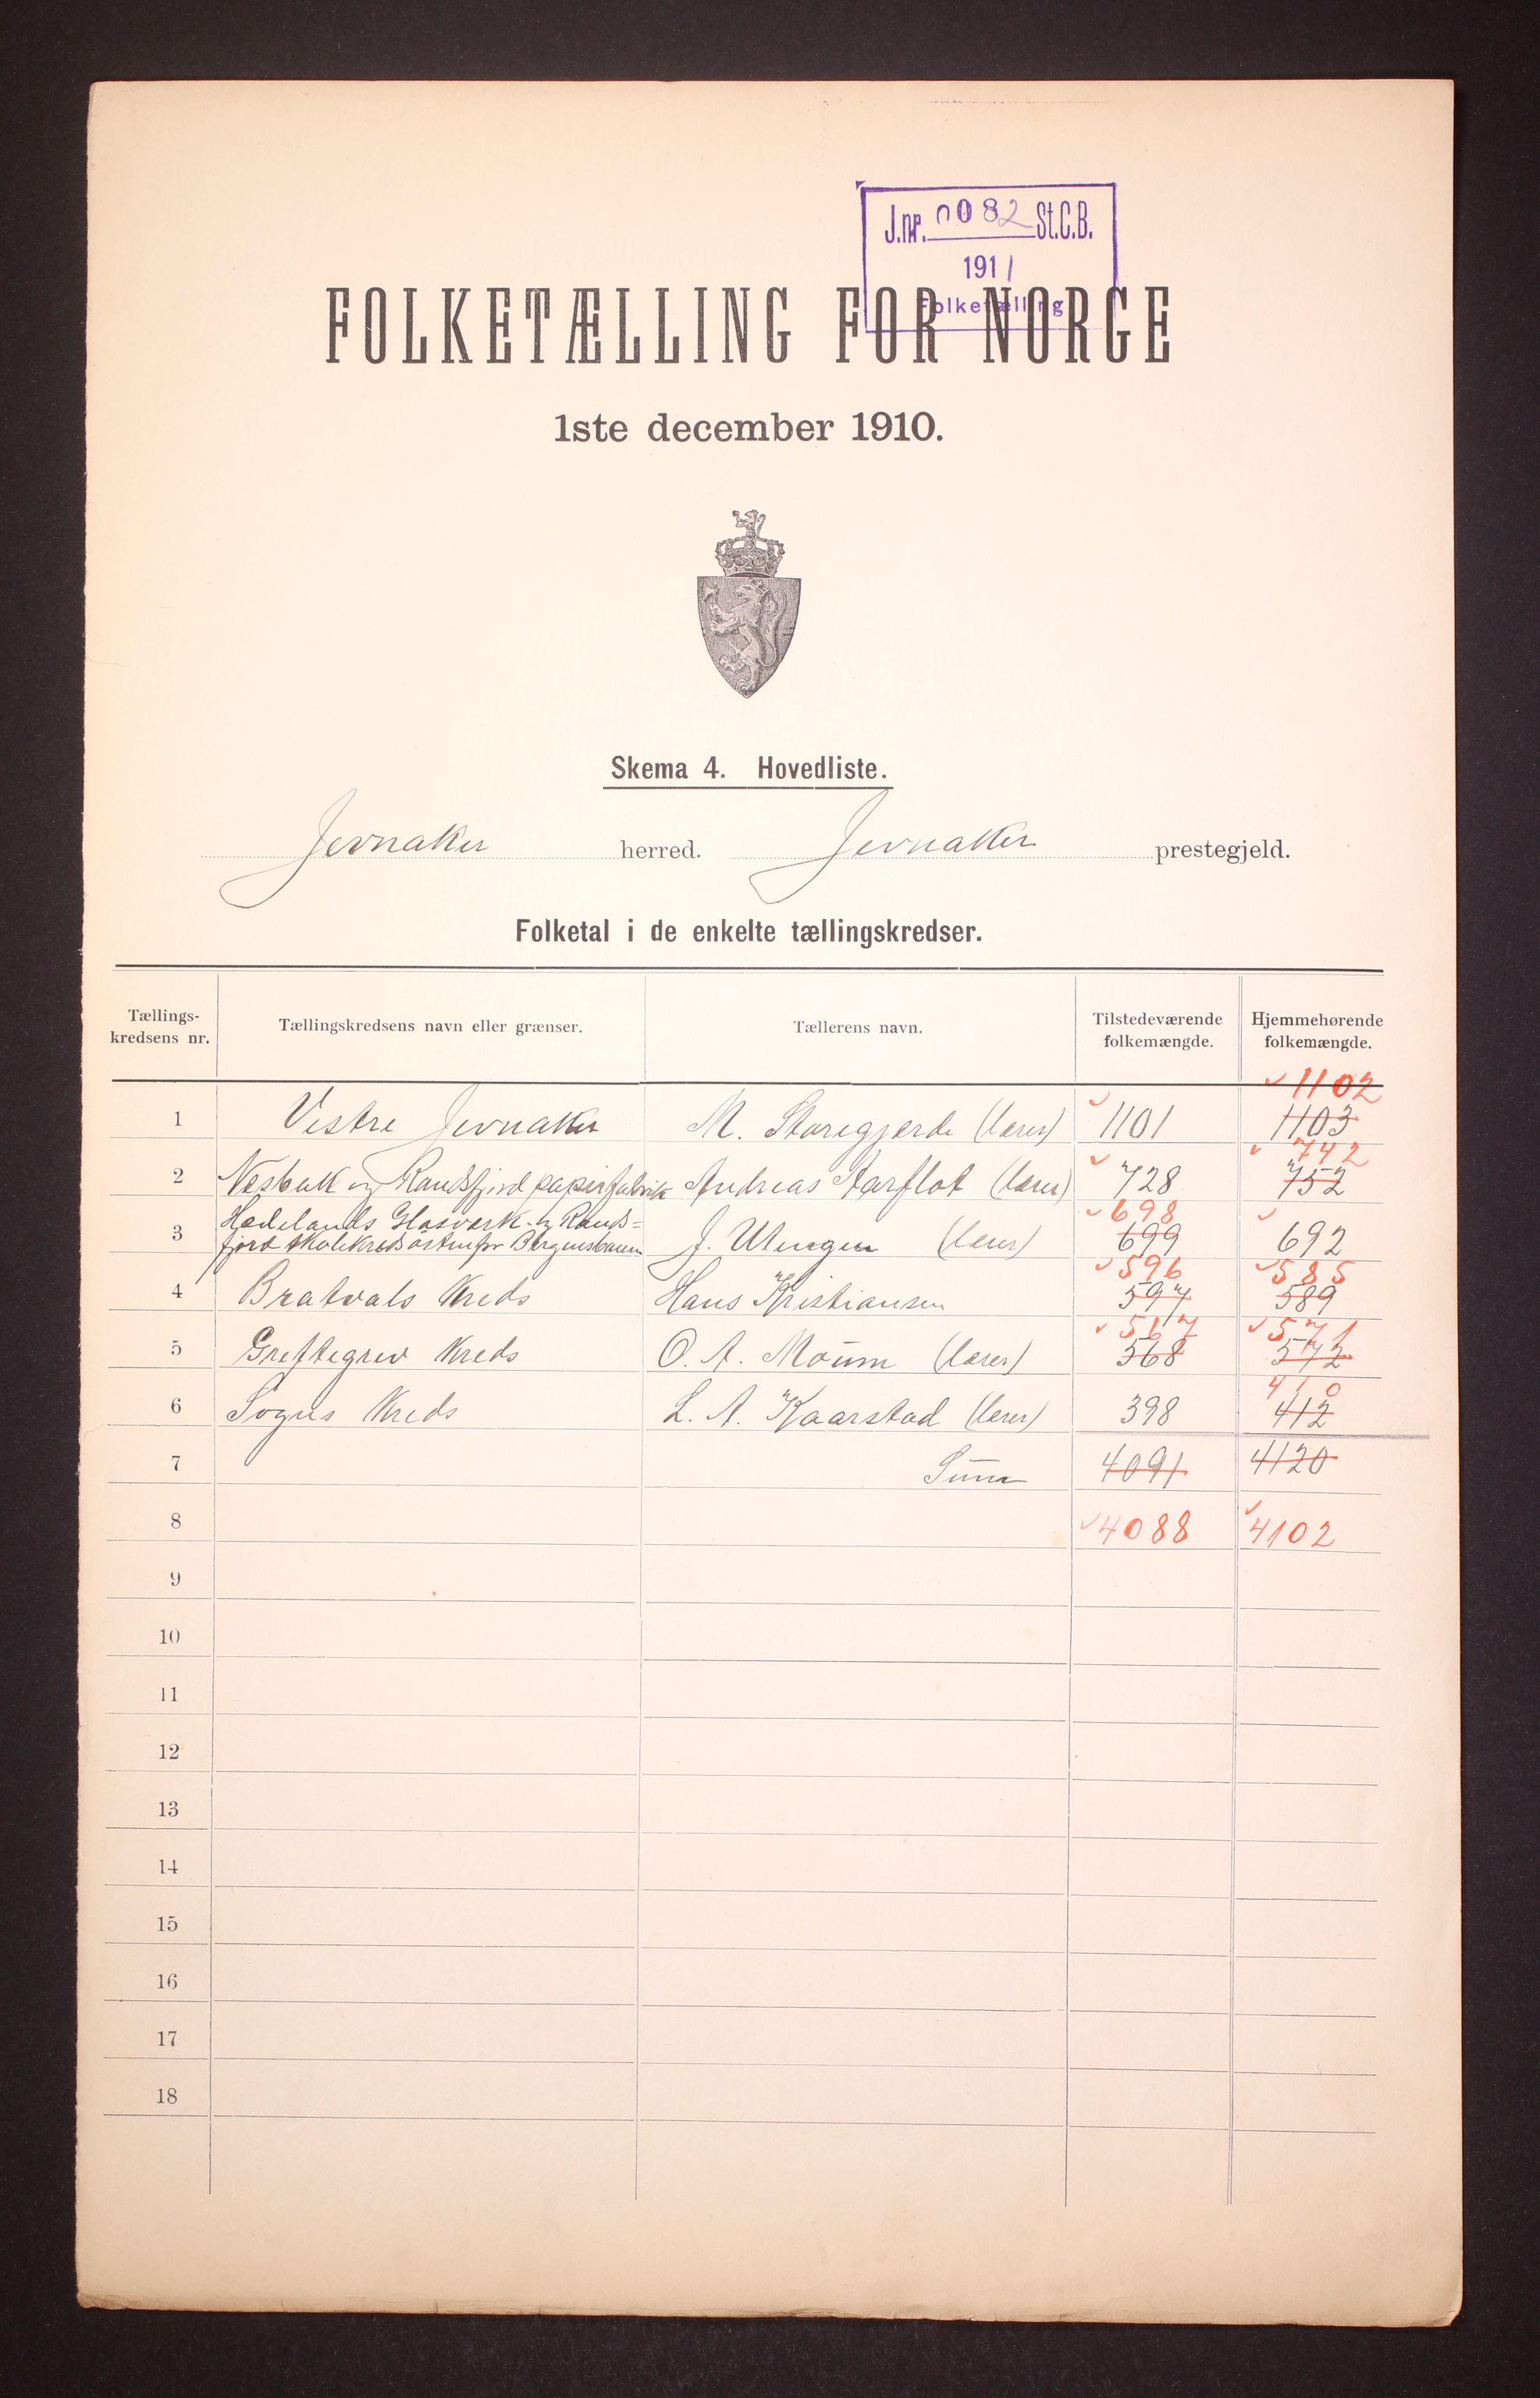 J.nr. 0082 St.C.B.
1911
Folketælling
FOLKETÆLLING FOR NORGE
1ste december 1910.
Skema 4. Hovedliste.
Jevnaker herred. Jevnaker prestegjeld.
Folketal i de enkelte tællingskredser.
Tællings-kredsens nr. Tællingskredsens navn eller grænser. Tællerens navn. Tilstedeværende folkemængde. Hjemmehørende folkemængde.
1102
1 Vestre Jevnaker M. Storegjerde (lærer) 1101 1103
742
2 Næsbak og Randsfjord papirfabrik Andreas Aarflot (lærer) 728 752
Hadelands Glasværk og Rands= 698
3 fjord skolekreds østenfor Bergensbanen J. Ulengen (lærer) 699 692
596 585
4 Bratvals Kreds Hans Kristiansen 597 589
567 571
5 Greftegrev Kreds O. A. Moum (lærer) 568 572
410
6 Sogns Kreds L. A. Kaarstad (lærer) 398 412
7 Sum 4091 4120
8 4088 4102
9
10
11
12
13
14
15
16
17
18